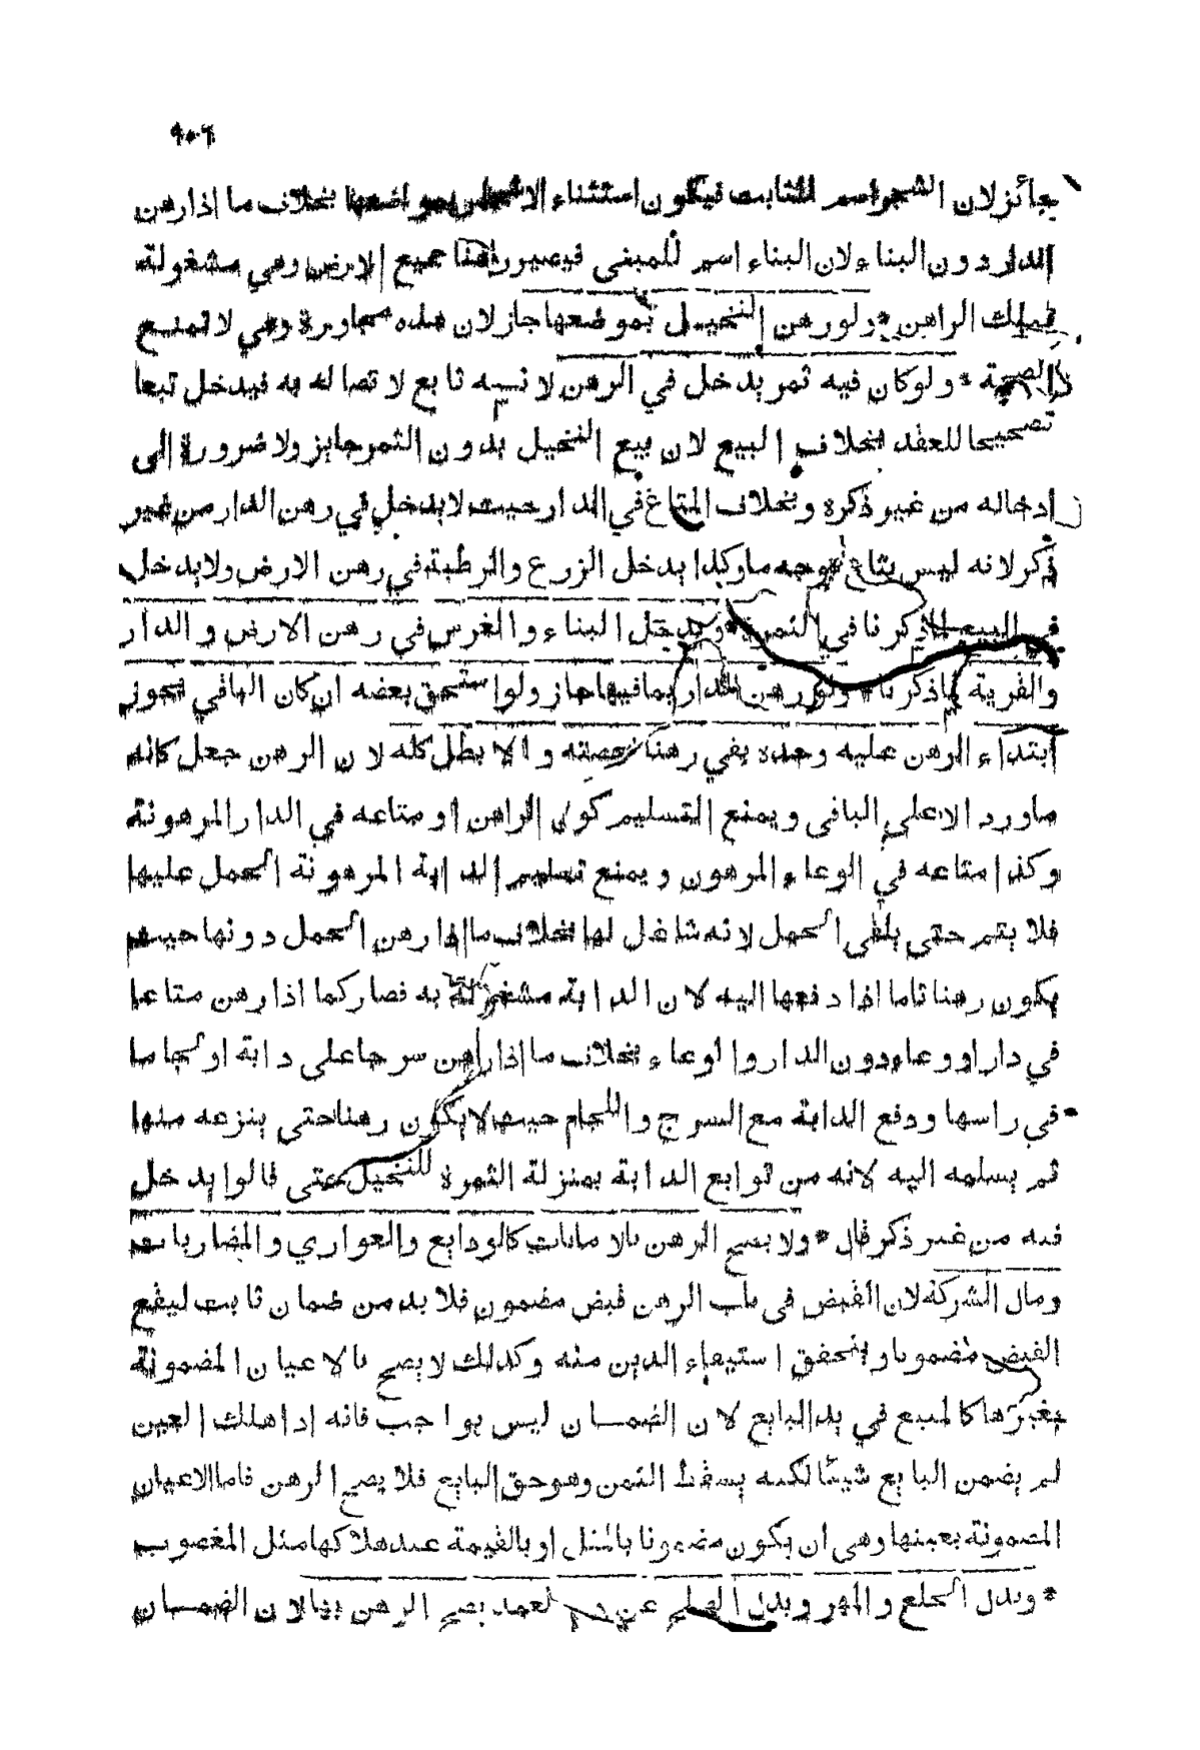 ٩٠٦
جائز لان الشجر اسم للنابت فيكون استثناء الاشجار بمواضعها بخلاف ما اذا رهن
الدار دون البناء لان البناء اسم للمبنى فيصير راهنا جميع الارض وهي مشغولة
بملك الراهن * ولو رهن النخيل بموضعها جاز لان هذه مجاورة وهي لا تمنع
الصحة * ولو كان فيه ثمر يدخل في الرهن لانه تابع لاتصاله به فيدخل تبعا
تصحيحا للعقد بخلاف البيع لان بيع النخيل بدون الثمر جايز ولا ضرورة الى
ادخاله من غير ذكره وبخلاف المتاع في الدار حيث لا يدخل في رهن الدار من غير
ذكر لانه ليس بتابع بوجه ما وكذا يدخل الزرع والرطبة في رهن الارض ولا يدخل
في البيع لما ذكرنا في الثمرة * ويدخل البناء والغرس في رهن الارض والدار
والقرية لما ذكرنا * ولو رهن الدار بما فيها جاز ولو استحق بعضه ان كان الباقي يجوز
ابتداء الرهن عليه وحده بقي رهنا بحصته والا بطل كله لان الرهن جعل كانه
ما ورد الا على الباقى ويمنع التسليم كون الراهن او متاعه في الدار المرهونة
وكذا متاعه في الوعاء المرهون ويمنع تسليم الدابة المرهونة الحمل عليها
فلا يتم حتى يلقى الحمل لانه شاغل لها بخلاف ما اذا رهن الحمل دونها حيث
يكون رهنا تاما اذا دفعها اليه لان الدابة مشغولة به فصار كما اذا رهن متاعا
في دار او وعاء دون الدار والوعاء بخلاف ما اذا رهن سرجا على دابة او لجاما
في راسها ودفع الدابة مع السرج واللجام حيث لا يكون رهنا حتى ينزعه منها
ثم يسلمه اليه لانه من توابع الدابة بمنزلة الثمرة للنخيل حتى قالوا يدخل
فيه من غير ذكر قال * ولا يصح الرهن بالامانات كالودايع والعواري والمضاربات
ومال الشركة لان القبض في باب الرهن قبض مضمون فلا بد من ضمان ثابت ليقع
القبض مضمونا ويتحقق استيفاء الدين منه وكذلك لا يصح بالاعيان المضمونة
بغيرها كالمبيع في يد البايع لان الضمان ليس بواجب فانه اذا هلك العين
لم يضمن البايع شيئا لكنه يسقط الثمن وهو حق البايع فلا يصح الرهن فاما الاعيان
المضمونة بعينها وهي ان يكون مضمونا بالمثل او بالقيمة عند هلاكها مثل المغصوب
* وبدل الخلع والمهر وبدل الصلح عن دم العمد يصح الرهن بها لان الضمان